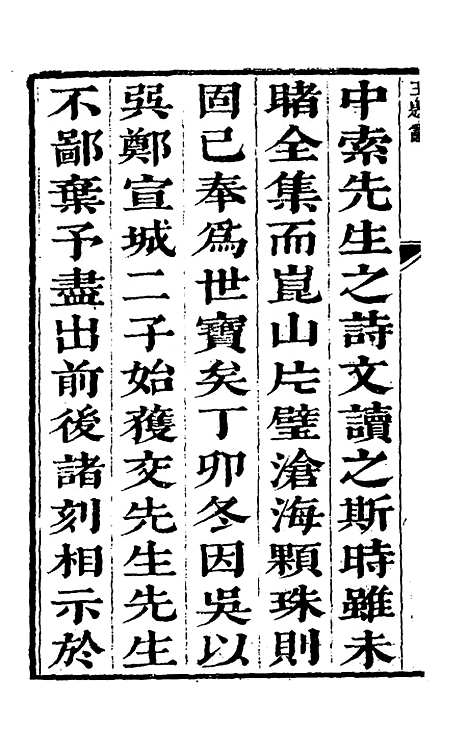 中索先生之詩文讀之斯時雖未
睹全集而崑山片璧滄海顆珠則
固已奉爲世寶矣丁卯冬因吳以
巽鄭宣城二子始獲交先生先生
不鄙棄予盡出前後諸刻相示於